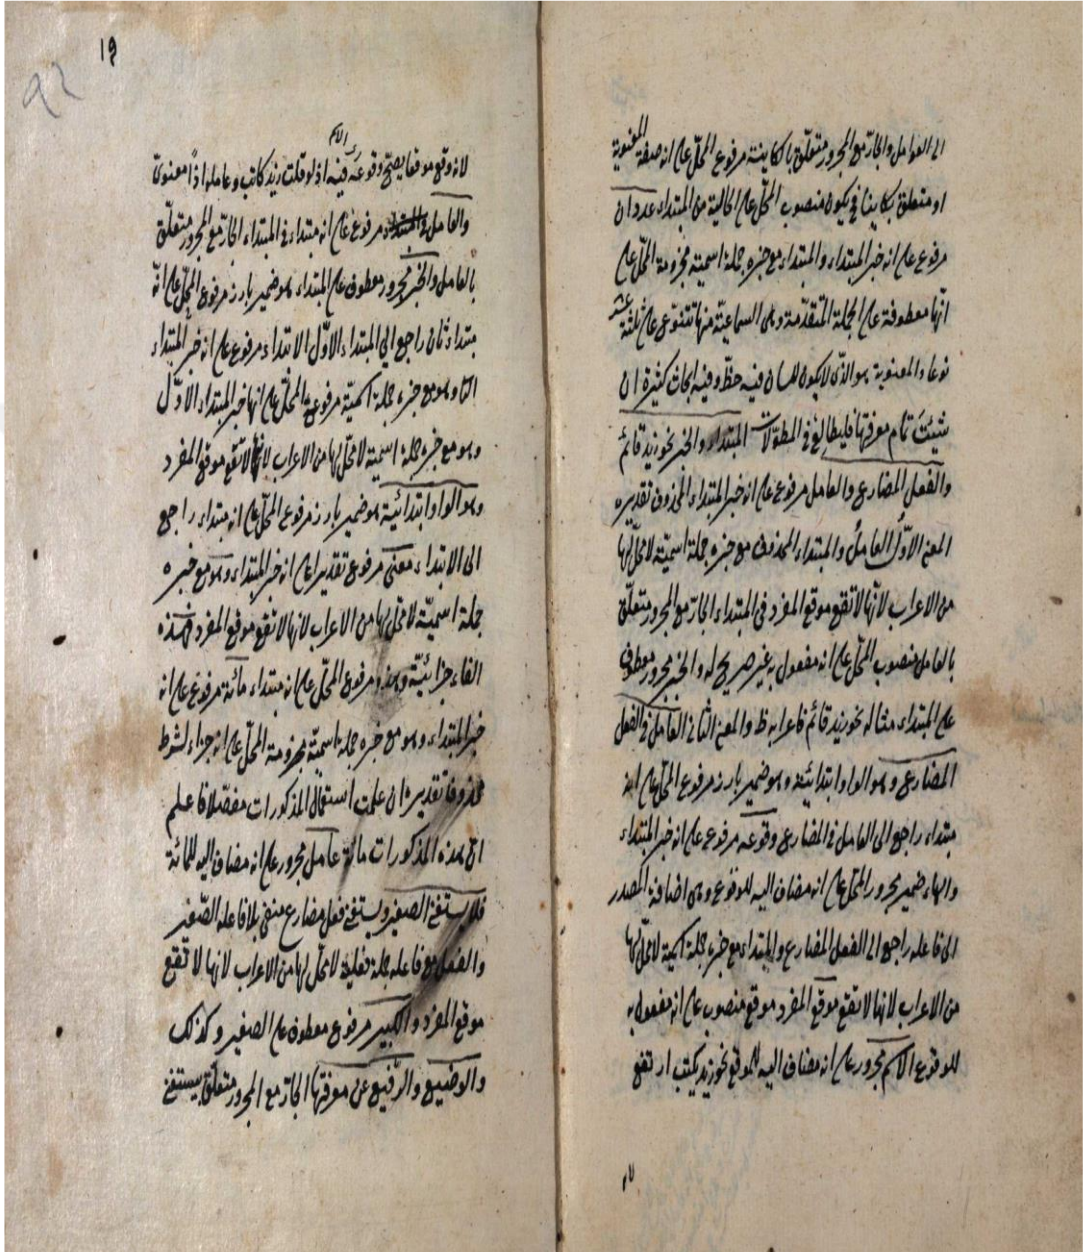 الى العوامل والجار مع المجرور متعلق بالكاينة مرفوع المحل على انه صفة المعنوية
او متعلق بكاينا فيكون منصوب المحل على الحالية من المبتداء عددان
مرفوع على انه خبر المبتداء والمبتداء مع خبره جملة اسمية مجزومة المحل على
انها معطوفة على الجملة المتقدمة وهى السماعية منها تتنوع على ثلثة عشر
نوعا والمعنوية هو الذى لا يكون للسان فيه حظ وفيه ابحاث كثيرة ان
شئت تمام معرفتها فليطالع فى المطولات المبتداء والخبر نحو زيد قائم
والفعل المضارع والعامل مرفوع على انه خبر المبتداء المحذوف تقديره
المعنى الاول العامل والمبتداء المحذوف مع خبره جملة اسمية لا محل لها
من الاعراب لانها لا تقع موقع المفرد فى المبتداء الجار مع المجرور متعلق
بالعامل منصوب المحل على انه مفعول به غير صريح له والخبر مجرور معطوف
على المبتداء مثاله نحو زيد قائم فاعرابه ظ والمعنى الثانى العامل فى الفعل
المضارع وهو الواو ابتدائية وهو ضمير بارز مرفوع المحل على انه
مبتداء راجع الى العامل فى المضارع وقوعه مرفوع على انه خبر المبتداء
والهاء ضمير مجرور المحل على انه مضاف اليه للوقوع وهى اضافة المصدر
الى فاعله راجع الى الفعل المضارع والمبتداء مع خبره جملة اسمية لا محل لها
من الاعراب لانها لا تقع موقع المفرد موقع منصوب على انه مفعول به
للوقوع الاسم مجرور على انه مضاف اليه للموقع نحو زيد يكتب ارتفع
لا
١٩
92
لانه وقع موقعا يصح وقوع الاسم فيه اذ لو قلت زيد كاتب وعامله اذا معنوى
والعامل مرفوع على انه مبتداء فى المبتداء الجار مع المجرور متعلق
بالعامل والخبر مجرور معطوف على المبتداء هو ضمير بارز مرفوع المحل على انه
مبتداء ثان راجع الى المبتداء الاول الابتداء مرفوع على انه خبر المبتداء
وهو مع خبره جملة اسمية مرفوعة المحل على انها خبر المبتداء الاول
وهو مع خبره جملة اسمية لا محل لها من الاعراب لانها لا تقع موقع المفرد
وهو الواو ابتدائية هو ضمير بارز مرفوع المحل على انه مبتداء راجع
الى الابتداء معنى مرفوع تقديرا على انه خبر المبتداء وهو مع خبره
جملة اسمية لا محل لها من الاعراب لانها لا تقع موقع المفرد فهذه
الفاء جزائية وهذه مرفوع المحل على انه مبتداء مائة مرفوع على انه
خبر المبتداء وهو مع خبره جملة اسمية مجزومة المحل على انه جزاء لشرط
محذوف تقديره ان علمت استعمال المذكورات مفصلا فاعلم
ان هذه المذكورات مائة عامل مجرور على انه مضاف اليه للمائة
فلا يستغنى الصغير ويستغنى فعل مضارع منفى بلا فاعله الصغير
والفعل مع فاعله جملة فعلية لا محل لها من الاعراب لانها لا تقع
موقع المفرد والكبير مرفوع معطوف على الصغير وكذلك
والوضيع والرفيع عن معرفتها الجار مع المجرور متعلق بيستغنى